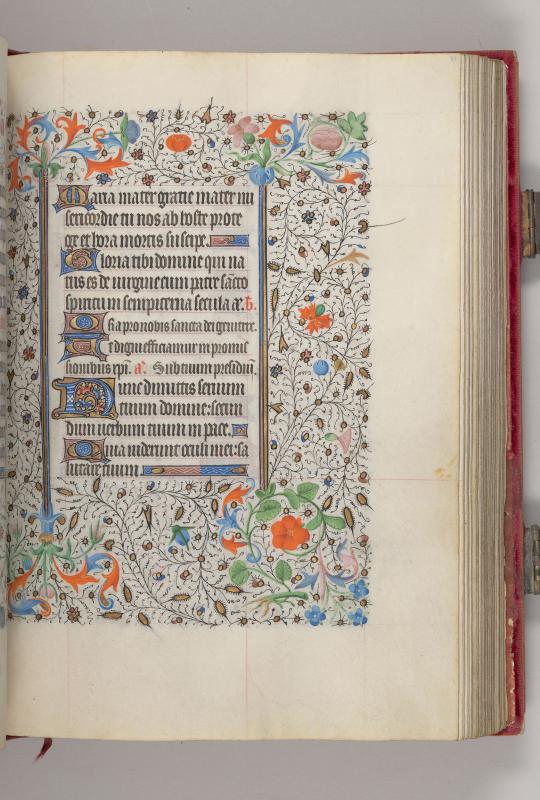 Maria mater gratie mater mi
sericordie tu nos ab hoste prote
ge et hora mortis suscipe.
Gloria tibi domine qui na
tus es de virgine cum patre sācto
spiritu in sempiterna secula aē. ꝟ.
Ora pro nobis sancta dei genitrix.
Ut digni efficiamur promis
sionibus xpī. aā. Sub tuum presidiū.
Nunc dimittis servum
tuum domine: secun
dum verbum tuum in pace.
Quia viderunt oculi mei: sa
lutare tuum